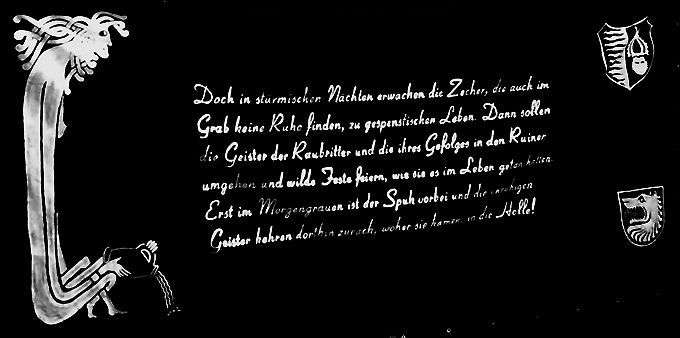 Doch in stürmischen Nächten erwachen die Zecher, die auch im
Grab keine Ruhe finden, zu gespenstischen Leben. Dann sollen
die Geister der Raubritter und die ihres Gefolges in den Ruinen
umgehen und wilde Feste feiern, wie sie es im Leben getan hatten.
Erst im Morgengrauen ist der Spuk vorbei und die unruhigen
Geister kehren dorthin zurück, woher sie kamen: in die Hölle!